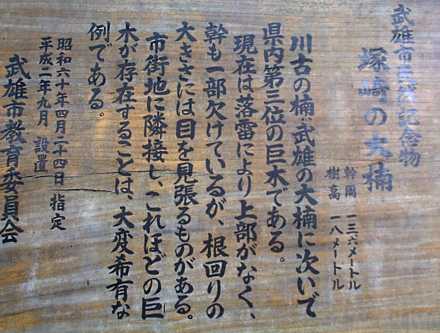 武雄市天然記念物
塚崎の大楠
幹周 一三・六メートル
樹高 一八メートル
川古の楠・武雄の大楠に次いで
県内第三位の巨木である。
現在は落雷により上部がなく、
幹も一部欠けているが、根回りの
大きさには目を見張るものがある。
市街地に隣接し、これほどの巨
木が存在することは、大変希有な
例である。
昭和六十年四月二十四日 指定
平成二年九月 設置
武雄市教育委員会